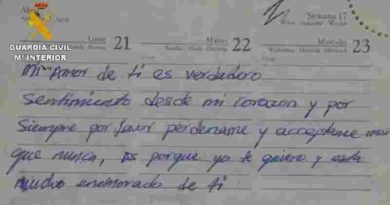 Abril
Semana 17
GUARDIA CIVIL
Mº INTERIOR
Lunes 21
Martes 22
Miércoles 23
Mi Amor de ti es verdadero
Sentimiento desde mi corazon y por
Siempre por favor perdename y acceptame mas
que nunca, es porque yo te quiero y esta
mucho enemorado de ti